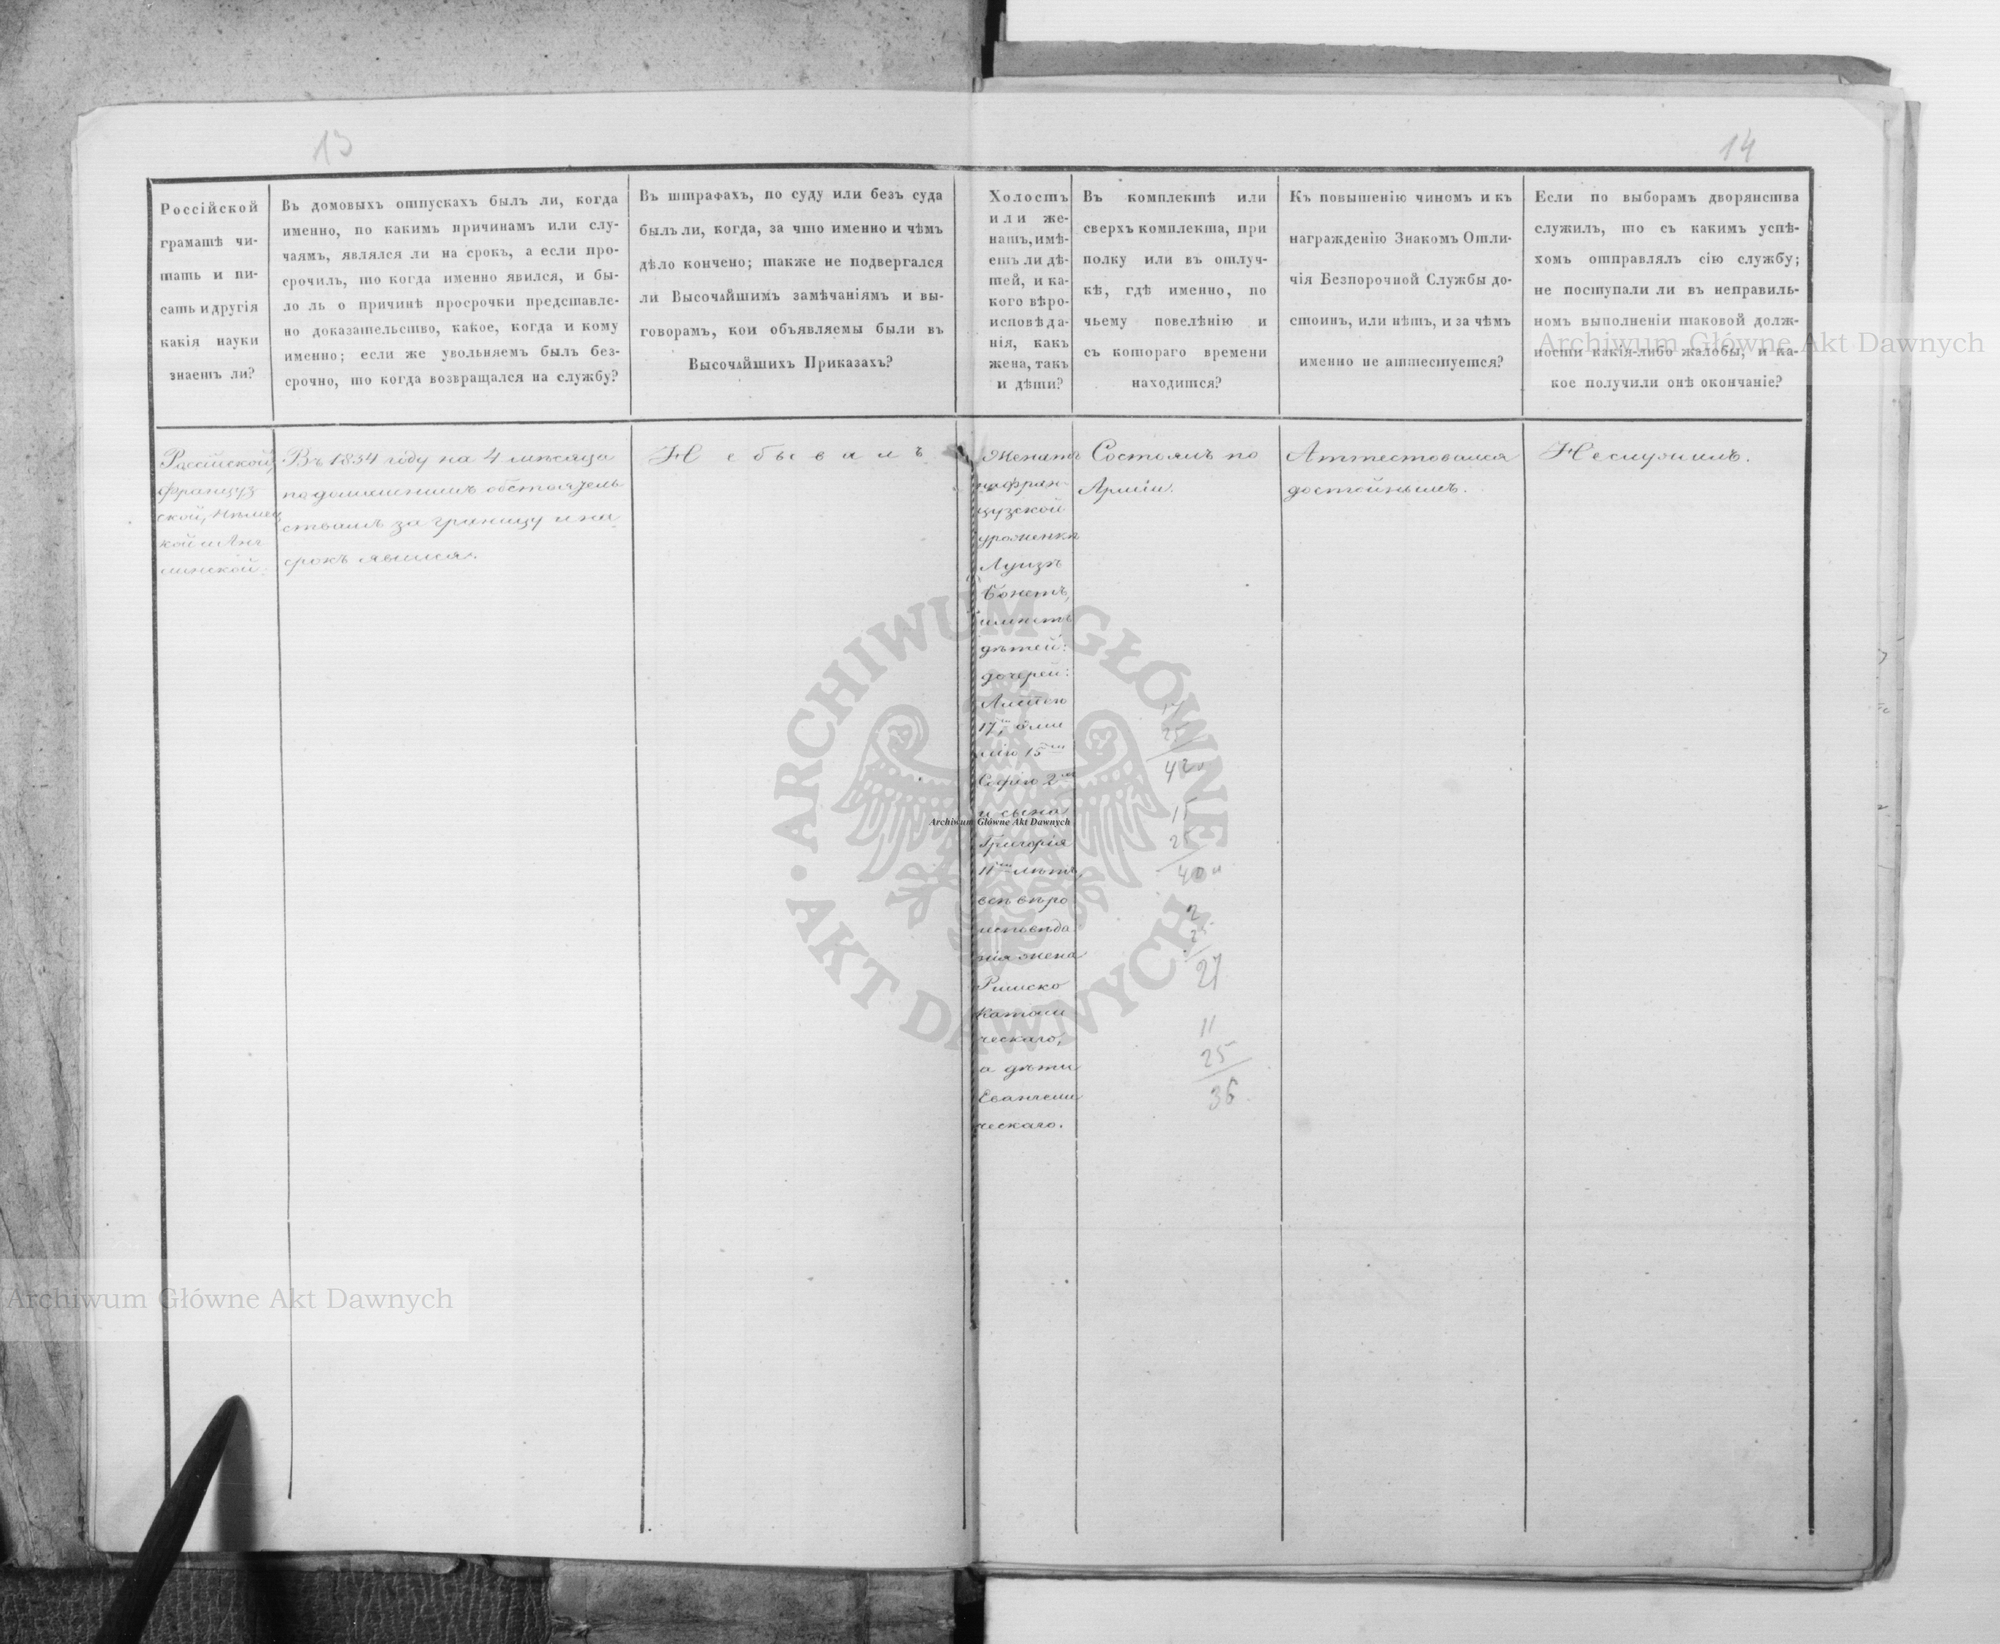 13
14
Россійской
грамотѣ чи-
тать и пи-
сать и другія
какія науки
знаетъ ли?
Въ домовыхъ отпускахъ былъ ли, когда
именно, по какимъ причинамъ или слу-
чаямъ, являлся ли на срокъ, а если про-
срочилъ, то когда именно явился, и бы-
ло ль о причинѣ просрочки представле-
но доказательство, какое, когда и кому
именно; если же увольняемъ былъ без-
срочно, то когда возвращался на службу?
Въ штрафахъ, по суду или безъ суда
былъ ли, когда, за что именно и чѣмъ
дѣло кончено; также не подвергался
ли Высочайшимъ замѣчаніямъ и вы-
говорамъ, кои объявляемы были въ
Высочайшихъ Приказахъ?
Холостъ
или же-
натъ, имѣ-
етъ ли дѣ-
тей, и ка-
кого вѣро-
исповѣда-
нія, какъ
жена, такъ
и дѣти?
Въ комплектѣ или
сверхъ комплекта, при
полку или въ отлуч-
кѣ, гдѣ именно, по
чьему повелѣнію и
съ котораго времени
находится?
Къ повышенію чиномъ и къ
награжденію Знакомъ Отли-
чія Безпорочной Службы до-
стоинъ, или нѣтъ, и за чѣмъ
именно не аттестуется?
Если по выборамъ дворянства
служилъ, то съ какимъ успѣ-
хомъ отправлялъ сію службу;
не поступали ли въ неправиль-
номъ выполненіи таковой долж-
ности какія-либо жалобы, и ка-
кое получили онѣ окончаніе?
Россійской,
француз
ской, Нѣмец
кой и Анг
линской.
Въ 1834 году на 4 мѣсяца
по домашнимъ обстоятель
ствамъ за границу и на
срокъ явился.
Не бывалъ
Женатъ
на фран-
цузской
уроженкѣ
Луизѣ
имѣетъ
дѣтей:
дочерей:
17, Эми
лію 15
Софію 2
и сына
Григорія
11 лѣтъ,
всѣ вѣро
исповѣда
нія жена
Римско
Католи
ческаго,
а дѣти
Евангели
ческаго.
Состоялъ по
Арміи.
17
25
42
15
25
40
2
25
27
11
25
36
Аттестовался
достойнымъ.
Не служилъ.
Archiwum Główne Akt Dawnych
Archiwum Główne Akt Dawnych
Archiwum Główne Akt Dawnych
ARCHIWUM GŁÓWNE
AKT DAWNYCH